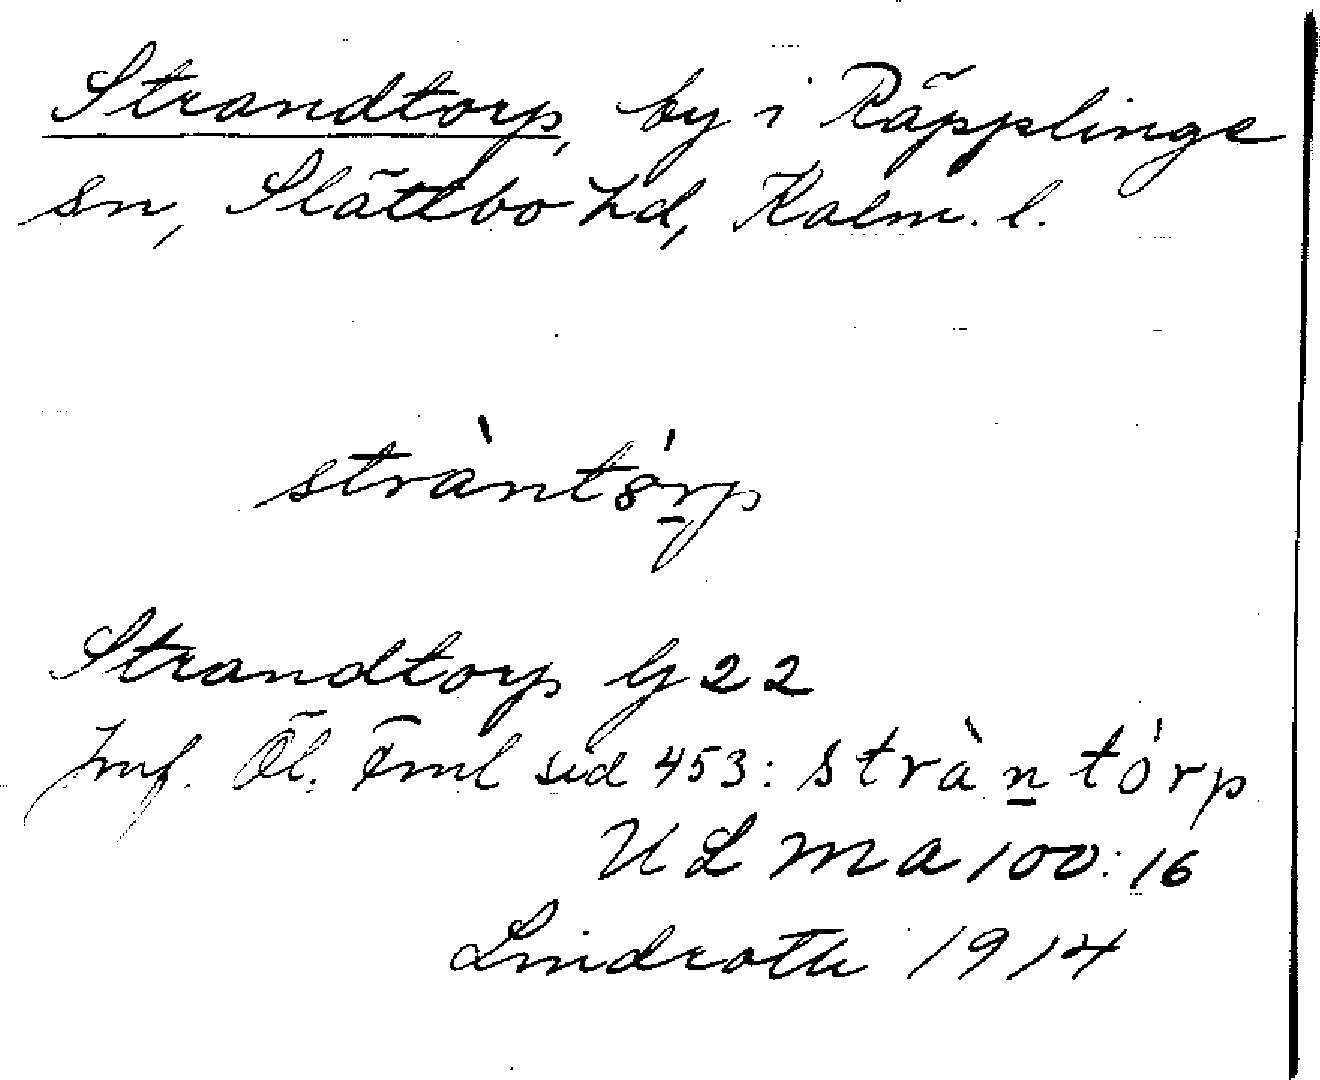 Strandtorp, by i Räpplinge
sn, Slättbo hd, Kalm. l.
stràntórp
Strandtorp G 22
Jmf. Öl. Fml sid 453: stràn̠tórp
ULMA 100:16
Lindroth 1914